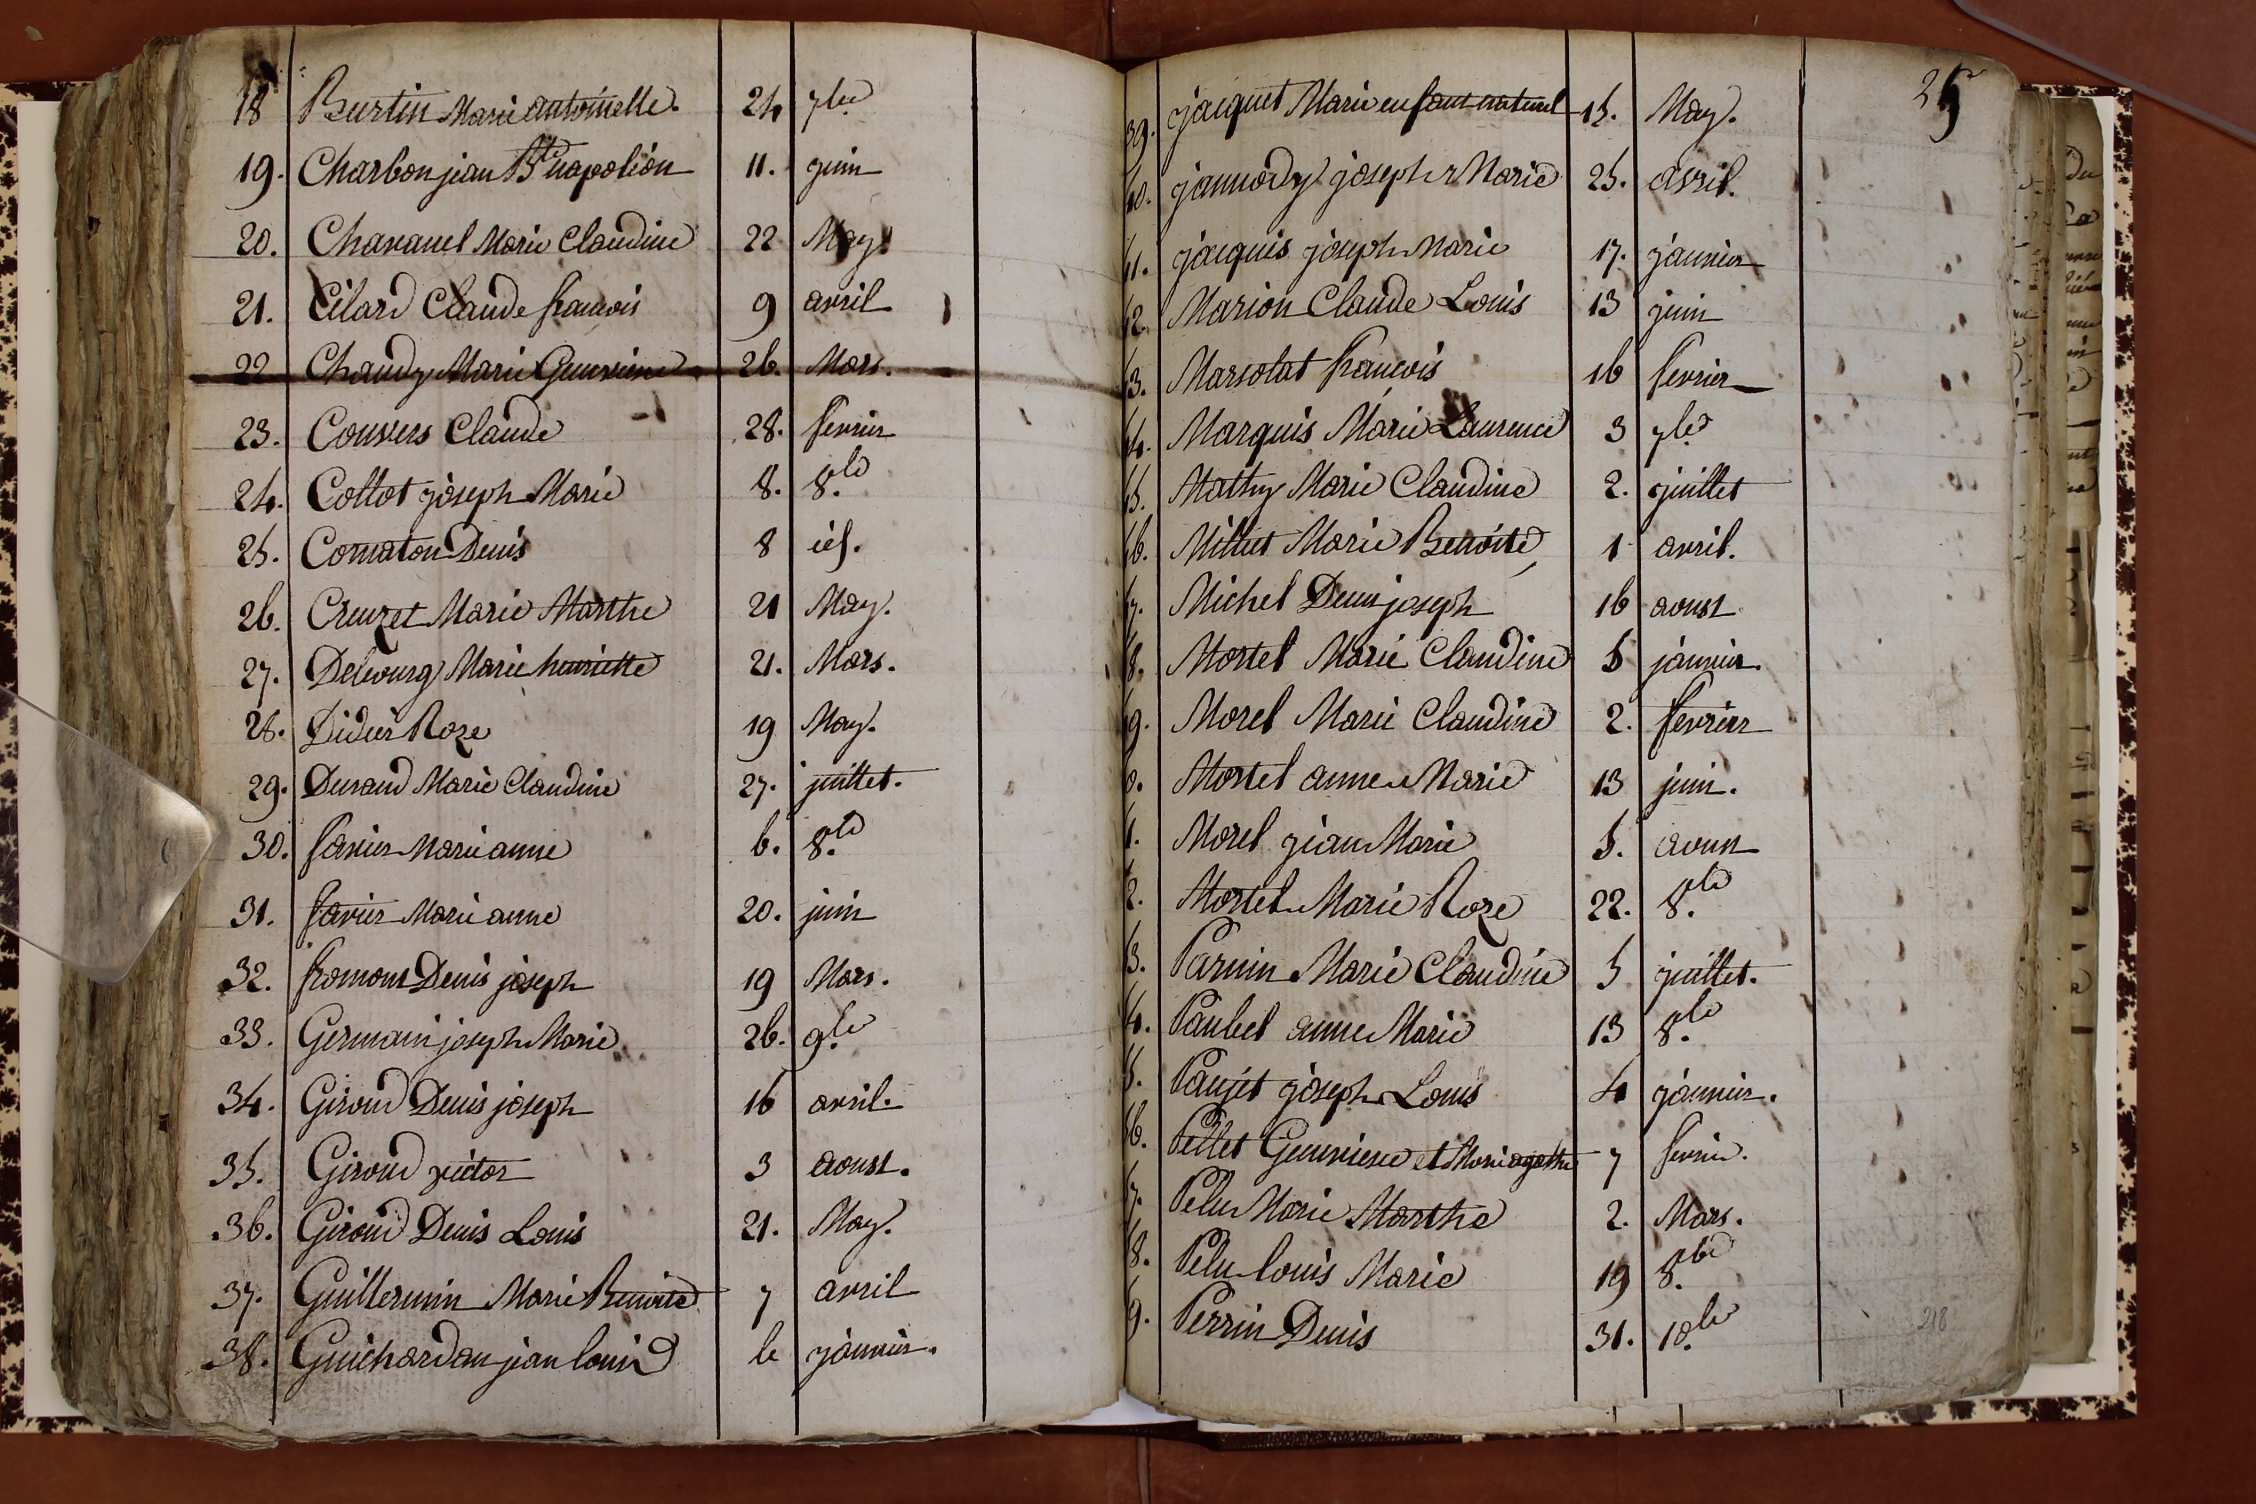 18 Burtin Marie antoinette. 24 7bre
19. Charbon jean Bte napoléon 11. juin
20. Chavanel Marie Claudine 22 May.
21. Cilard Claude francois 9 avril
22 Chaudy Marie Genevieve 26. Mars.
23. Convers Claude 28. fevrier
24. Collot joseph Marie 8. 8.bre
25. Comaton Denis 8 id.
26. Creuzet Marie Marthe 21 May.
27. Delbourg Marie henriette 21. Mars.
28. Didier Roze 19 May.
29. Durand Marie Claudine 27. juillet.
30. favier Marie anne 6. 8.bre
31. favier Marie anne 20. juin
32. fromont Denis joseph 19 Mars.
33. Germain joseph Marie 26. 9.bre
34. Giroud Denis joseph 16 avril.
35. Giroud victor 3 aoust.
36. Giroud Denis Louis 21. May.
37. Guillermin Marie Benoite 7 avril
38. Guichardan jean louis le janvier.
25
39. jacquet Marie enfant naturel 15. May.
40. jannody joseph Marie 25. avril.
41. jacquis joseph Marie 17. janvier
42. Marion Claude Louis 13 juin
43. Marsolat francois 16 fevrier
44. Marquis Marie Laurence 3 7bre
45. Mathy Marie Claudine 2. juillet
46. Millet Marie Benoite 1 avril.
47. Michel Denis joseph 16 aoust
48. Mortel Marie Claudine 5 janvier.
49. Morel Marie Claudine 2. fevrier
0. Mortel anne Marie 13 juin.
1. Morel jean Marie 5. aoust
2. Mortel Marie Roze 22. 8.bre
3. Parnin Marie Claudine 5 juillet.
4. Paubel anne Marie 13 8.bre
5. Paujet joseph Louis 4 janvier.
56. Pellet Genevieve et Marie agathe 7 fevrier.
7. Pelu Marie Marthe 2. Mars.
8. Pelu louis Marie 19 8.bre
9. Perrin Denis 31. 10.bre
218